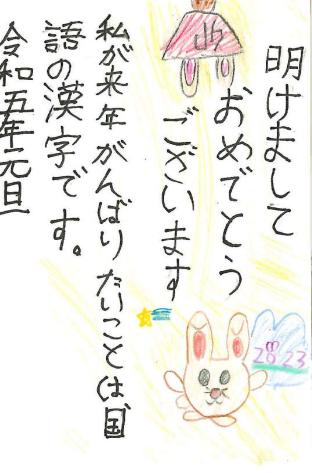 明けまして
おめでとう
ございます
私が来年がんばりたいことは国
語の漢字です。
令和五年元旦
2023